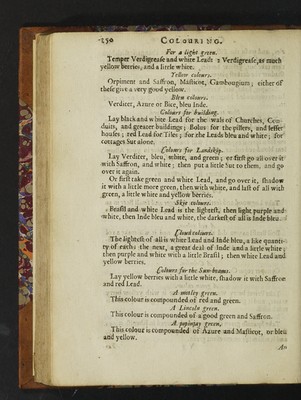 150 COLOURING.
For a light green.
Temper Verdigrease and white Lead; 2 Verdigrease, as much
yellow berries, and a little white.
Yellow colours.
Orpiment and Saffron, Masticot, Gambougium; either of
these give a very good yellow.
Blew colours.
Verditer, Azure or Bice, bleu Inde.
Colours for building.
Lay black and white Lead for the wals of Churches, Con-
duits, and greater buildings; Bolus for the pillers, and lesser
houses; red Lead for Tiles; for the Leads bleu and white; for
cottages Sut alone.
Colours for Landskip.
Lay Verditer, bleu, white, and green; or first go all over it
with Saffron, and white; then put a little Sut to them, and go
over it again.
Or first take green and white Lead, and go over it, shadow
it with a little more green, then with white, and last of all with
green, a little white and yellow berries.
Skie colours.
Brasil and white Lead is the lightest, then light purple and
white, then Inde bleu and white, the darkest of all is Inde bleu.
Cloud colours.
The lightest of all is white Lead and Inde bleu, a like quanti-
ty of each: the next, a great deal of Inde and a little white;
then purple and white with a little Brasil; then white Lead and
yellow berries.
Colours for the Sun-beams.
Lay yellow berries with a little white, shadow it with Saffron
and red Lead.
A motley green.
This colour is compounded of red and green.
A Lincoln green.
This colour is compounded of a good green and Saffron.
A popinjay green.
This colour is compounded of Azure and Massicot, or bleu
and yellow.